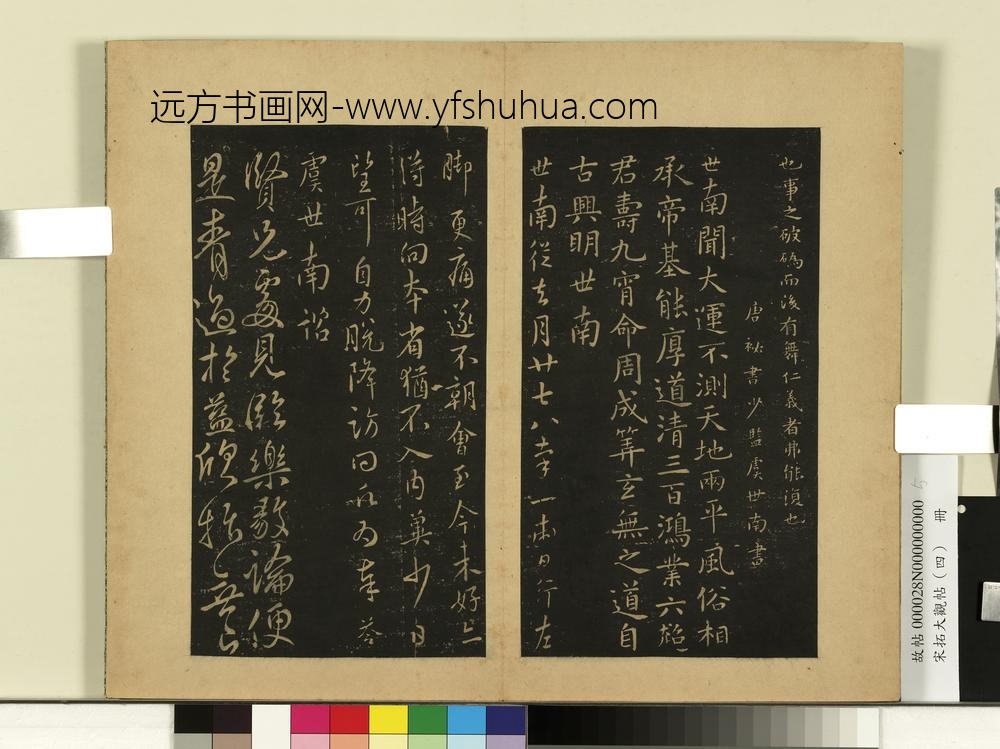 远方书画网-www.yfshuhua.com
也事之破碎而後有舞仁義者弗能復也
唐秘書少監虞世南書
世南聞大運不測天地兩平風俗相
承帝基能厚道清三百鴻業六超
君壽九霄命周成筭玄無之道自
古興明世南
世南從去月廿七八率一兩日行左
脚更痛遂不朝會至今未好亦
得時向本省猶不入內冀少日
望可自力脱降訪問願為奉答
虞世南諮
賢兄處見臨樂毅論便
是青過於藍欣抃
故帖000028N000000000
宋拓大觀帖（四） 冊